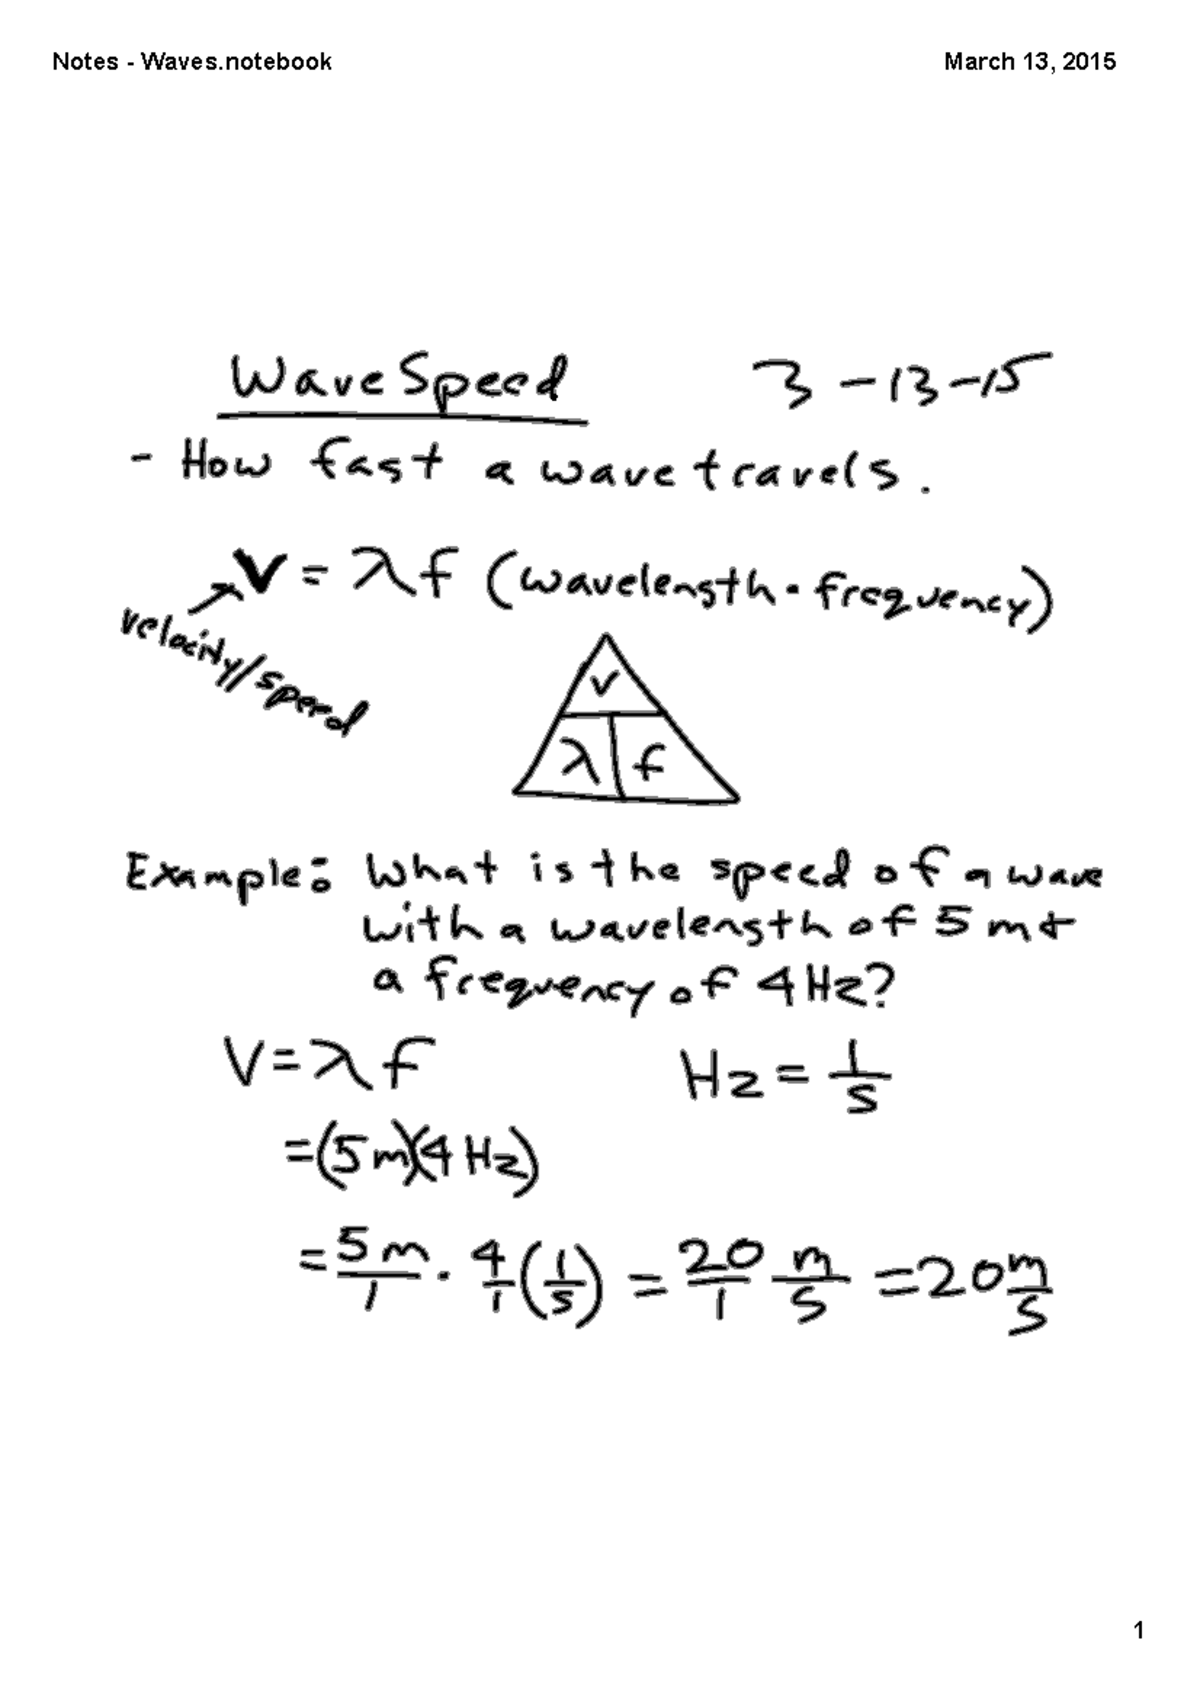 Notes - Waves.notebook
March 13, 2015
Wave Speed
3-13-15
- How fast a wave travels.
v = λf (wavelength · frequency)
velocity/speed
v
λ f
Example: What is the speed of a wave
with a wavelength of 5 m +
a frequency of 4 Hz?
V = λf
Hz = 1/s
= (5 m)(4 Hz)
= 5m/1 · 4/1 (1/s) = 20/1 m/s = 20 m/s
1